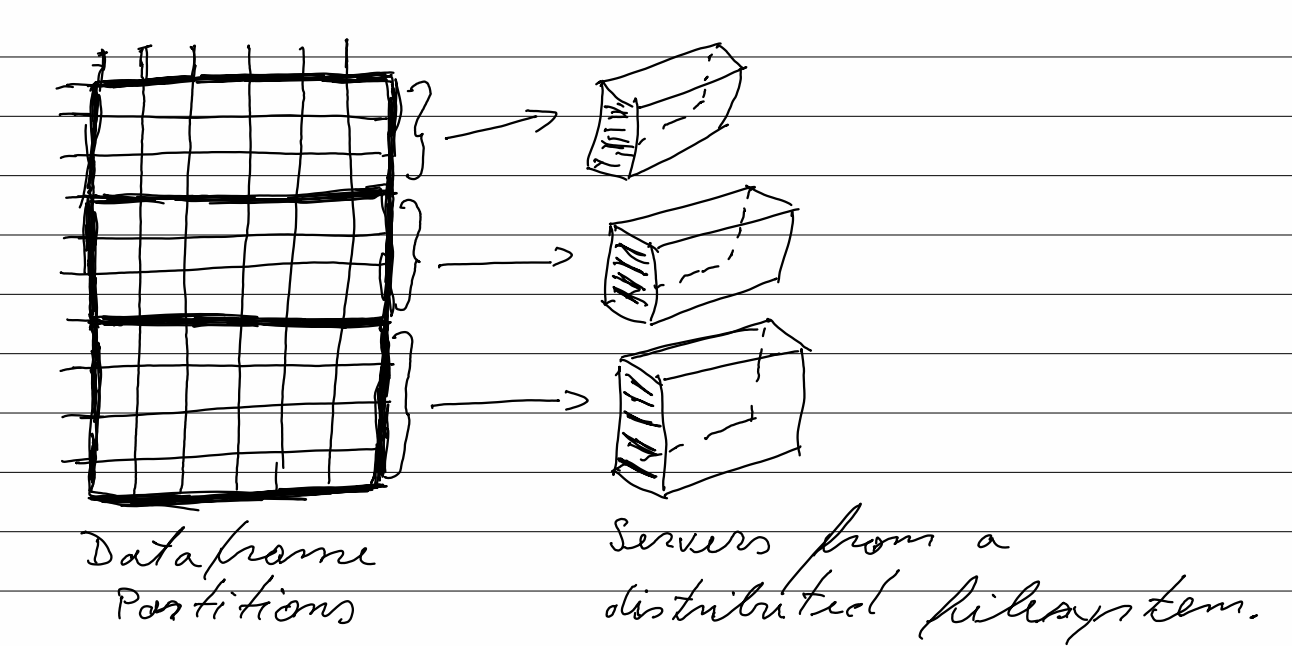 Dataframe
Partitions
Servers from a
distributed filesystem.